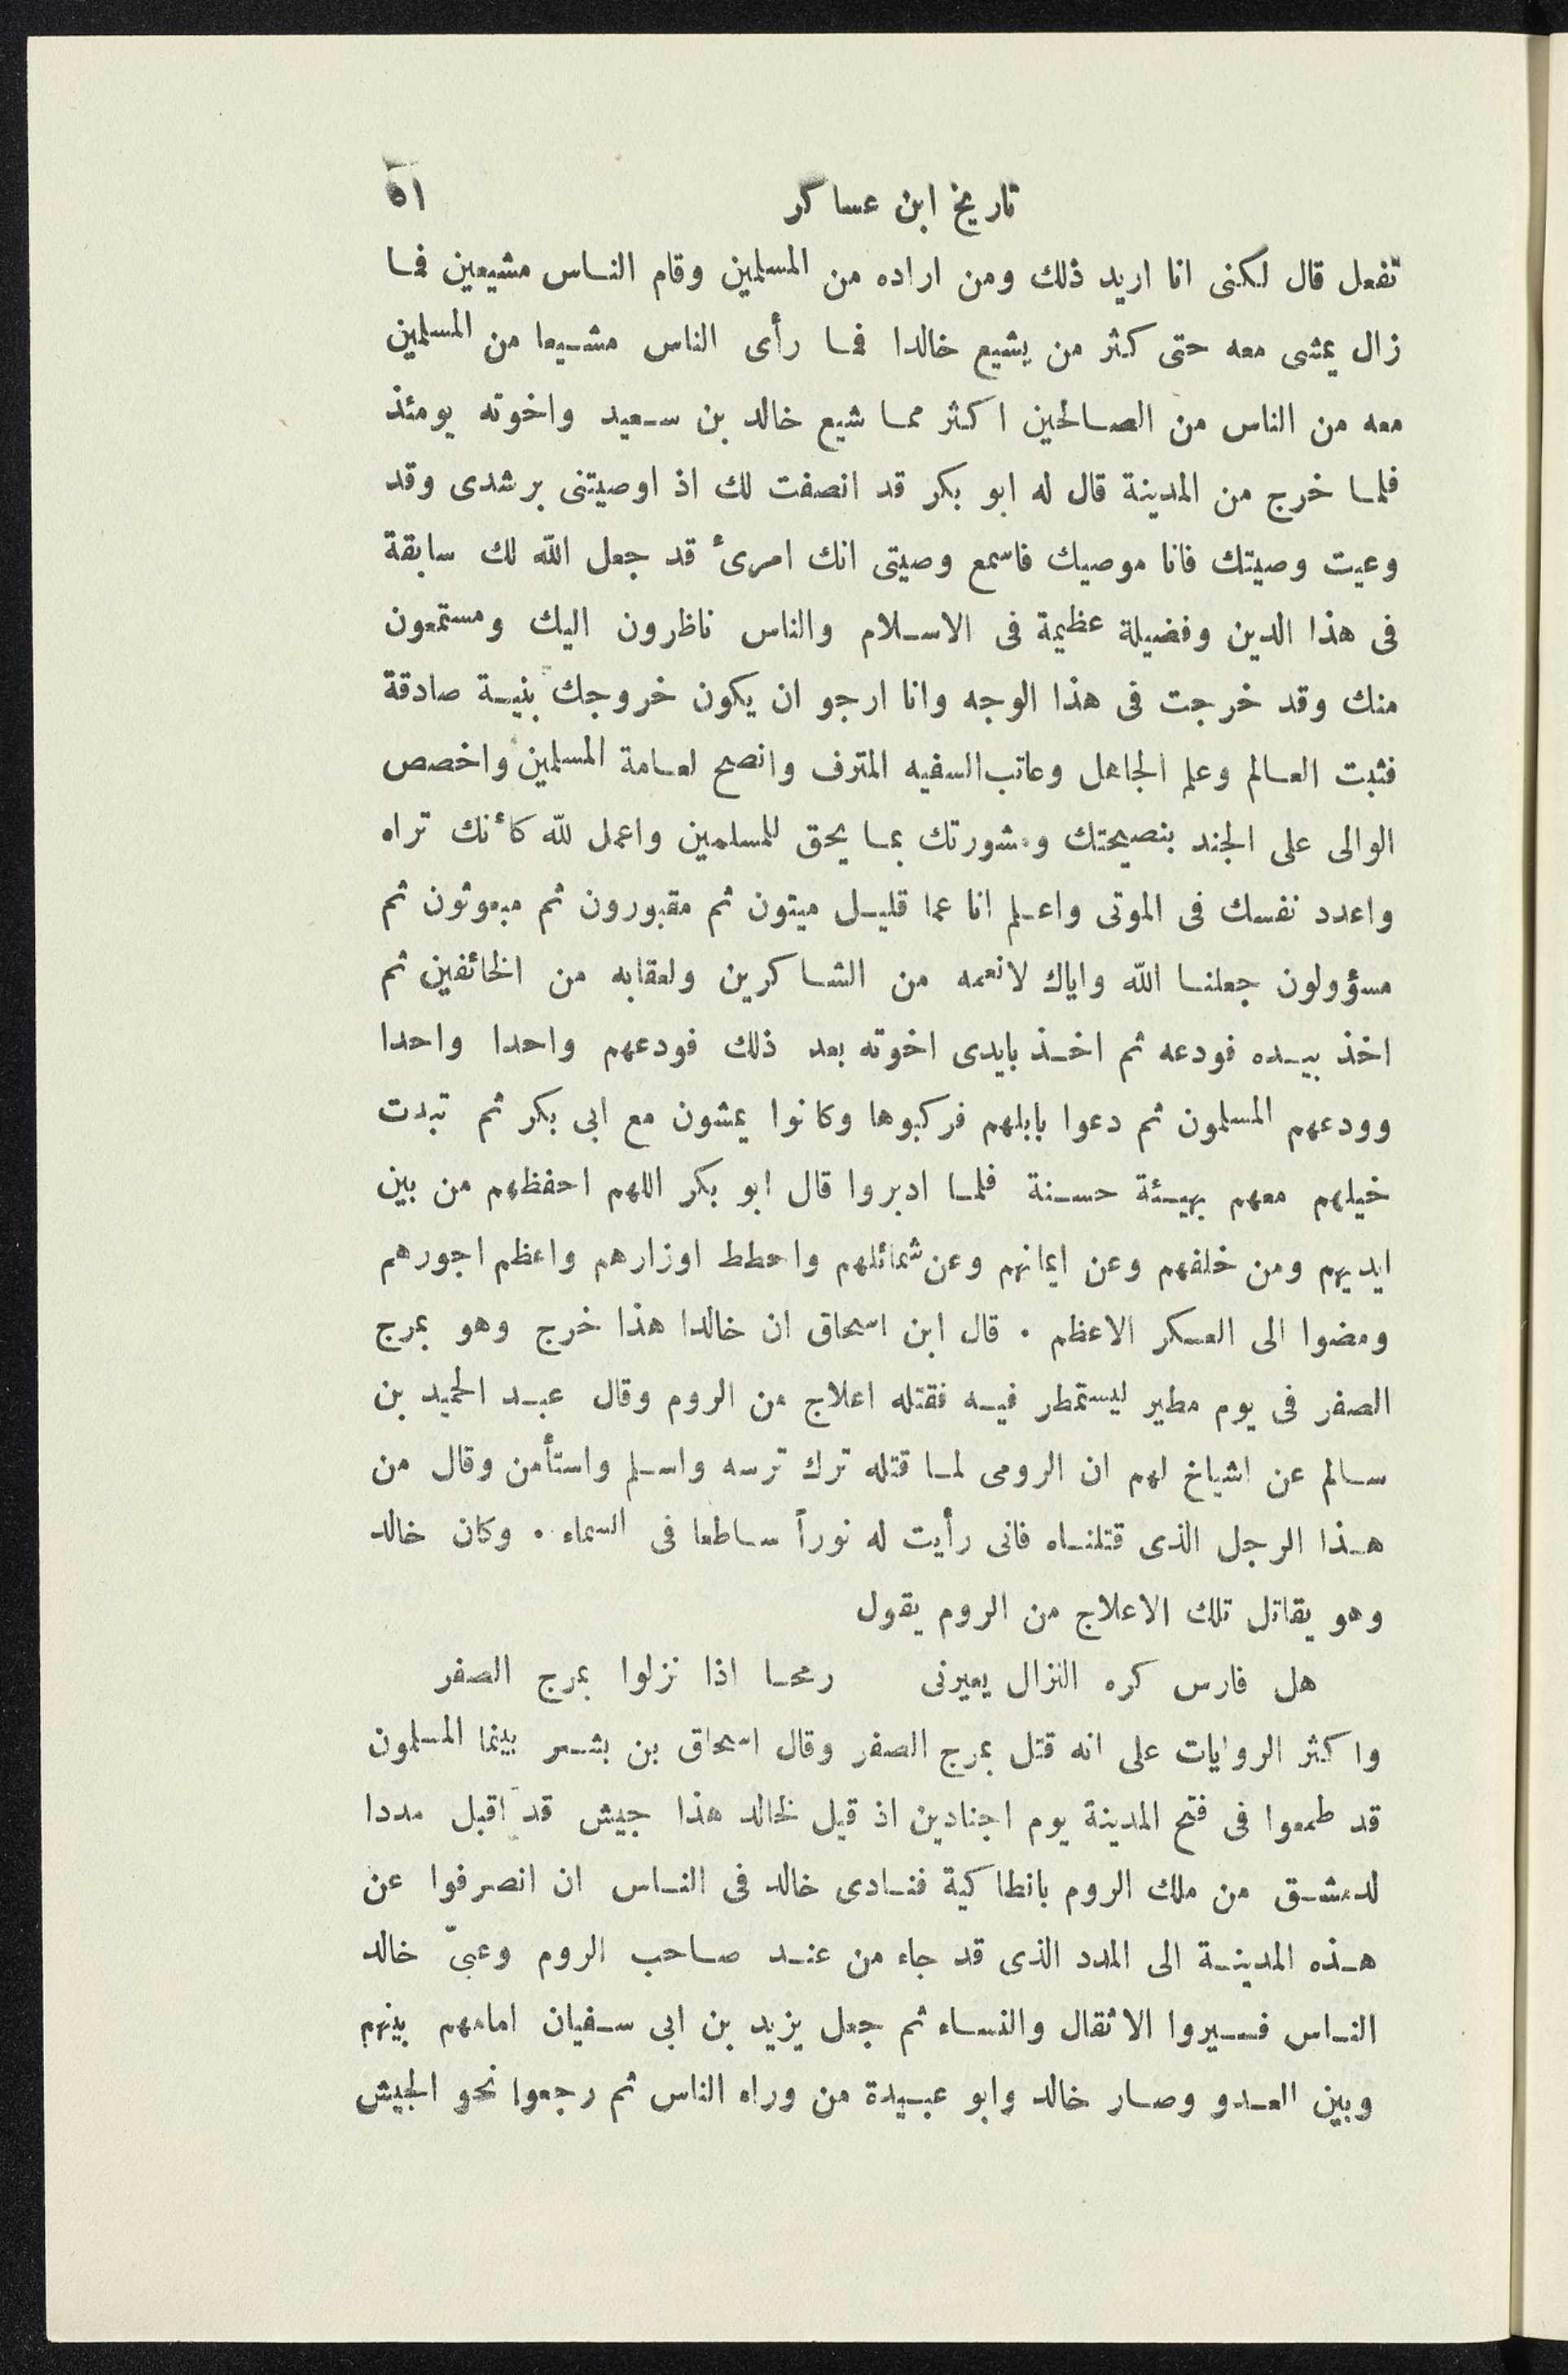 تاريخ ابن عساكر ٥١
تفعل قال لكنى انا اريد ذلك ومن اراده من المسلمين وقام النـاس مشيعين فمـا
زال يمشى معه حتى كثر من يشيع خالدا فمـا رأى الناس مشـيعا من المسلمين
معه من الناس من الصـالحين اكثر ممـا شيع خالد بن سـعيد واخوته يومئذ
فلمـا خرج من المدينة قال له ابو بكر قد انصفت لك اذ اوصيتنى برشدى وقد
وعيت وصيتك فانا موصيك فاسمع وصيتى انك امرئ قد جعل الله لك سابقة
فى هذا الدين وفضيلة عظيمة فى الاسـلام والناس ناظرون اليك ومستمعون
منك وقد خرجت فى هذا الوجه وانا ارجو ان يكون خروجك بنيـة صادقة
فثبت العـالم وعلم الجاهل وعاتب السفيه المترف وانصح لعـامة المسلمين واخصص
الوالى على الجند بنصيحتك ومشورتك بمـا يحق للمسلمين واعمل لله كأنك تراه
واعدد نفسك فى الموتى واعـلم انا عما قليـل ميتون ثم مقبورون ثم مبعوثون ثم
مسؤولون جعلنـا الله واياك لانعمه من الشـاكرين ولعقابه من الخائفين ثم
اخذ بيـده فودعه ثم اخـذ بايدى اخوته بعد ذلك فودعهم واحدا واحدا
وودعهم المسلمون ثم دعوا بابلهم فركبوها وكانوا يمشون مع ابى بكر ثم تبدت
خيلهم معهم بهيـئة حسـنة فلمـا ادبروا قال ابو بكر اللهم احفظهم من بين
ايديهم ومن خلفهم وعن ايمانهم وعن شمائلهم واحطط اوزارهم واعظم اجورهم
ومضوا الى العـسكر الاعظم . قال ابن اسحاق ان خالدا هذا خرج وهو بمرج
الصفر فى يوم مطير ليستمطر فيـه فقتله اعلاج من الروم وقال عبـد الحميد بن
سـالم عن اشياخ لهم ان الرومى لمـا قتله ترك ترسه واسـلم واستأمن وقال من
هـذا الرجل الذى قتلنـاه فانى رأيت له نوراً سـاطعا فى السماء . وكان خالد
وهو يقاتل تلك الاعلاج من الروم يقول
هل فارس كره النزال يعيرنى رمحـا اذا نزلوا بمرج الصفر
واكثر الروايات على انه قتل بمرج الصفر وقال اسحاق بن بشـر بينما المسلمون
قد طمعوا فى فتح المدينة يوم اجنادين اذ قيل لخالد هذا جيش قد اقبل مددا
لدمشـق من ملك الروم بانطاكية فنـادى خالد فى النـاس ان انصرفوا عن
هـذه المدينـة الى المدد الذى قد جاء من عنـد صـاحب الروم وعبىّ خالد
النـاس فسـيروا الاثقال والنسـاء ثم جعل يزيد بن ابى سـفيان امامهم بينهم
وبين العـدو وصـار خالد وابو عبـيدة من وراء الناس ثم رجعوا نحو الجيش